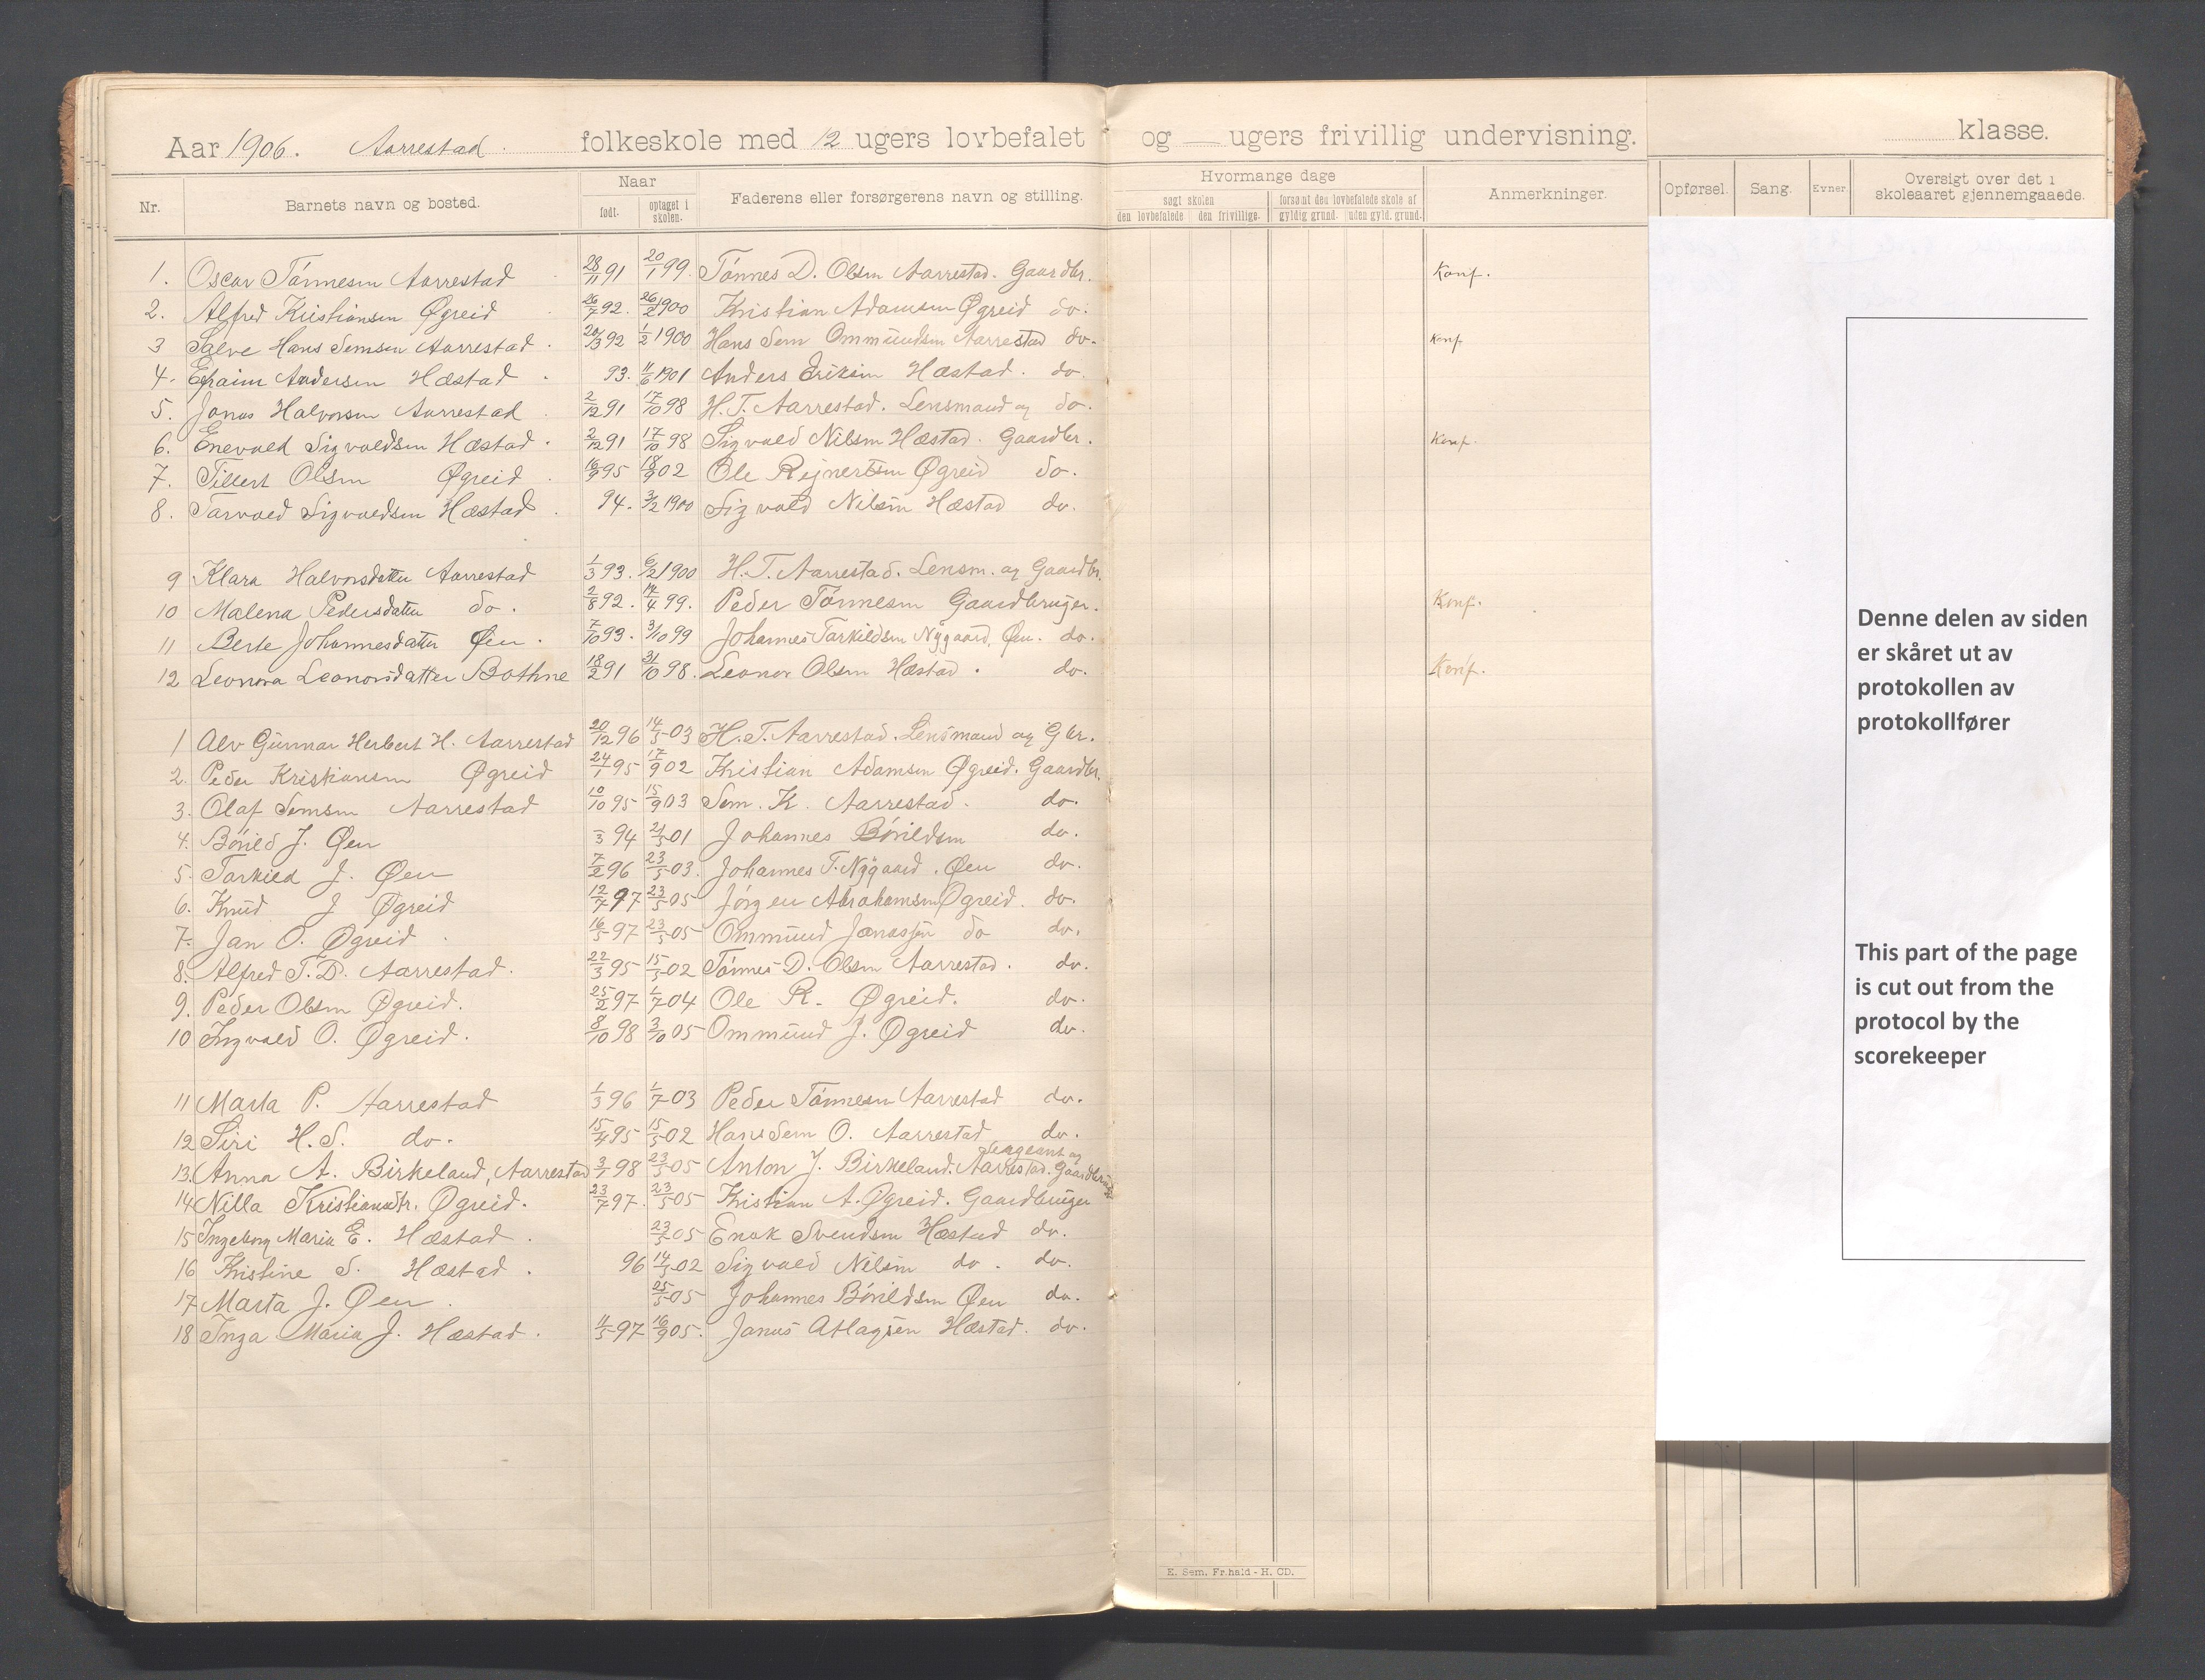 Aar 1906. Aarrestad folkeskole med 12 ugers lovbefalet og — ugers frivillig undervisning. klasse.
Nr. Barnets navn og bosted. Naar født. optaget i skolen. Faderens eller forsørgerens navn og stilling. Hvormange dage søgt skolen den lovbefalede den frivillige. forsømt den lovbefalede skole af gyldig grund. uden gyld. grund. Anmerkninger. Opførsel. Sang. Evner. Oversigt over det i skoleaaret gjennemgaaede.
1. Oscar Tónnesen Aarrestad 28/11 91 20/1 99. Tónnes D. Olsen Aarrestad. Gaardbr. Konf.
2. Alfred Kristiansen Øgreid 26/7 92. 26/2 1900 Kristian Adamsen Øgreid do.
3 Salve Hans Semsen Aarrestad. 20/3 92 1/2 1900 Hans Sem Ommundsen Aarrestad do. Konf.
4. Efraim Andersen Hæstad. 93. 11/6 1901 Anders Eriksen Hæstad. do.
5. Jonas Halvorsen Aarrestad 2/12 91 17/10 98 H. T. Aarrestad. Lensmand og do.
6. Enevald Sigvaldsen Hæstad. 2/12 91 17/10 98 Sigvald Nilsen Hæstad. Gaardbr. Konf.
7. Tillert Olsen Øgreid 16/9 95 18/9 02 Ole Rejnertsen Øgreid do.
8. Tarvald Sigvaldsen Hæstad 94. 3/2 1900 Sigvald Nilsen Hæstad do.
9 Klara Halvorsdatter Aarrestad 1/3 93. 6/2 1900 H. T. Aarrestad. Lensm. og Gaardbr.
10 Malena Pedersdatter do. 2/8 92. 14/4 99. Peder Tónnesen Gaardbruger. Konf.
11 Berte Johannesdatter Øen. 7/10 93. 3/10 99 Johannes Tarkildsen Nygaard, Øen. do.
12 Leonora Leonorsdatter Bothne 18/2 91 31/10 98. Leonor Olsen Hæstad. do. Konf.
1 Alv Gunnar Herbert H. Aarrestad 20/12 96 14/5 03 H. T. Aarrestad. Lensmand og Gbr.
2. Peder Kristiansen Øgreid 24/1 95 17/9 02 Kristian Adamsen Øgreid. Gaardbr.
3. Olaf Semsen Aarrestad 10/10 95 15/9 03 Sem. K. Aarrestad. do.
4. Bórild J. Øen -/3 94 21/5 01 Johannes Bórildsen do.
5. Tarkild J. Øen 7/2 96 23/5 03. Johannes T. Nygaard. Øen do.
6. Knud J Øgreid 12/7 97 23/5 05 Jórgen Abrahamsen Øgreid. do.
7. Jan O. Øgreid 16/5 97 23/5 05 Ommund Janassen do do.
8. Alfred T. D. Aarrestad. 22/3 95 15/5 02 Tónnes D. Olsen Aarrestad. do.
9. Peder Olsen Øgreid. 25/2 97 1/7 04 Ole R. Øgreid. do.
10 Ingvald O. Øgreid. 8/10 98 3/10 05 Ommund J. Øgreid do.
11 Marta P. Aarrestad 1/3 96 1/7 03 Peder Tónnesen Aarrestad do.
12 Siri H. S. do. 15/4 95 15/5 02 Hans Sem O. Aarrestad do.
13. Anna A. Birkeland, Aarrestad 3/1 98 23/5 05 Anton J. Birkeland. Aarrestad. Sergeant og Gaardbruger
14 Nilla Kristiansdtr. Øgreid. 23/7 97. 23/5 05 Kristian A. Øgreid. Gaardbruger
15 Ingeborg Maria E. Hæstad. 23/5 05 Enok Svendsen Hæstad do.
16 Kristine S. Hæstad. 96 14/5 02 Sigvald Nilsen do. do.
17 Marta J. Øen. 25/5 05 Johannes Bórildsen Øen do.
18 Inga Maria J. Hæstad. 11/5 97 16/9 05. Janus Atlagsen Hæstad. do.
E. Sem, Fr.hald - H. CD.
Denne delen av siden
er skåret ut av
protokollen av
protokollfører
This part of the page
is cut out from the
protocol by the
scorekeeper